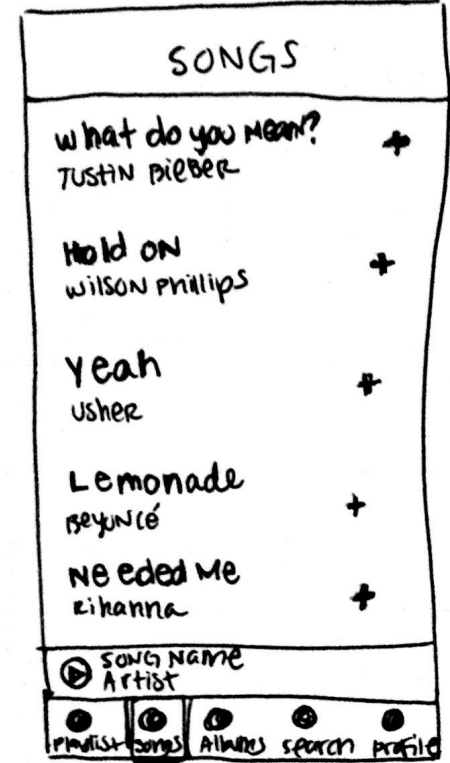 SONGS
What do you Mean?
Justin Bieber
Hold on
Wilson Phillips
Yeah
Usher
Lemonade
Beyoncé
Needed Me
Rihanna
Song Name
Artist
Playlist Songs Albums search profile